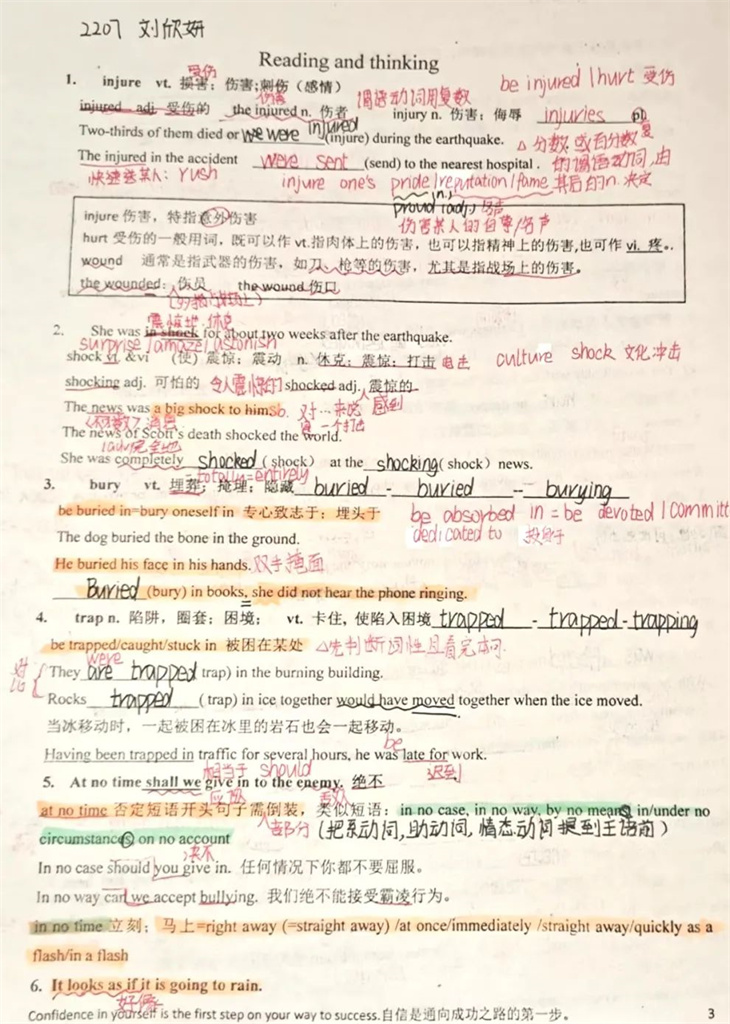 2207 刘欣妍
Reading and thinking
受伤
1. injure vt. 损害；伤害;刺伤（感情） be injured / hurt 受伤
伤害 谓语动词用复数
injured adj. 受伤的 the injured n. 伤者 injury n. 伤害；侮辱 injuries pl
Two-thirds of them died or we were injured (injure) during the earthquake. △ 分数 或百分数
The injured in the accident were sent (send) to the nearest hospital . 的谓语动词,由
快速送某人: rush injure one's pride/reputation/fame 其后的n.决定
n.
proud (adj)
injure 伤害，特指意外伤害 伤害某人的自尊/名声
hurt 受伤的一般用词，既可以作 vt.指肉体上的伤害，也可以指精神上的伤害,也可作 vi. 疼。
wound 通常是指武器的伤害，如刀、枪等的伤害，尤其是指战场上的伤害。
the wounded: 伤员 the wound 伤口
震惊 休克
2. She was in shock for about two weeks after the earthquake.
surprise / amaze / astonish
shock vt &vi （使）震惊；震动 n. 休克；震惊；打击 电击 culture shock 文化冲击
shocking adj. 可怕的 令人震惊的 shocked adj. 震惊的
感到
The news was a big shock to him. sb. 对…来说
是一个打击
The news of Scott's death shocked the world.
She was completely shocked ( shock ) at the shocking ( shock ) news.
=totally=entirely
3. bury vt. 埋葬；掩埋；隐藏 buried - buried -- burying
be buried in=bury oneself in 专心致志于；埋头于 be absorbed in = be devoted / committ
dedicated to 投身于
The dog buried the bone in the ground.
He buried his face in his hands. 双手掩面
Buried (bury) in books, she did not hear the phone ringing.
4. trap n. 陷阱，圈套；困境； vt. 卡住, 使陷入困境 trapped - trapped - trapping
be trapped/caught/stuck in 被困在某处 △先判断词性且看完本词.
were
对比
They are trapped trap) in the burning building.
Rocks trapped ( trap) in ice together would have moved together when the ice moved.
当冰移动时，一起被困在冰里的岩石也会一起移动。
be
Having been trapped in traffic for several hours, he was late for work.
相当于 should 迟到
5. At no time shall we give in to the enemy. 绝不
应该
at no time 否定短语开头句子需倒装，类似短语：in no case, in no way, by no means in/under no
部分 (把系动词,助动词,情态动词提到主语前)
circumstances on no account
决不
In no case should you give in. 任何情况下你都不要屈服。
In no way can we accept bullying. 我们绝不能接受霸凌行为。
in no time 立刻；马上=right away (=straight away) /at once/immediately /straight away/quickly as a
flash/in a flash
6. It looks as if it is going to rain.
好像
Confidence in yourself is the first step on your way to success.自信是通向成功之路的第一步。 3